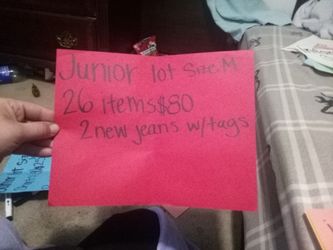 Junior lot Size M
26 items $80
2 new jeans w/tags